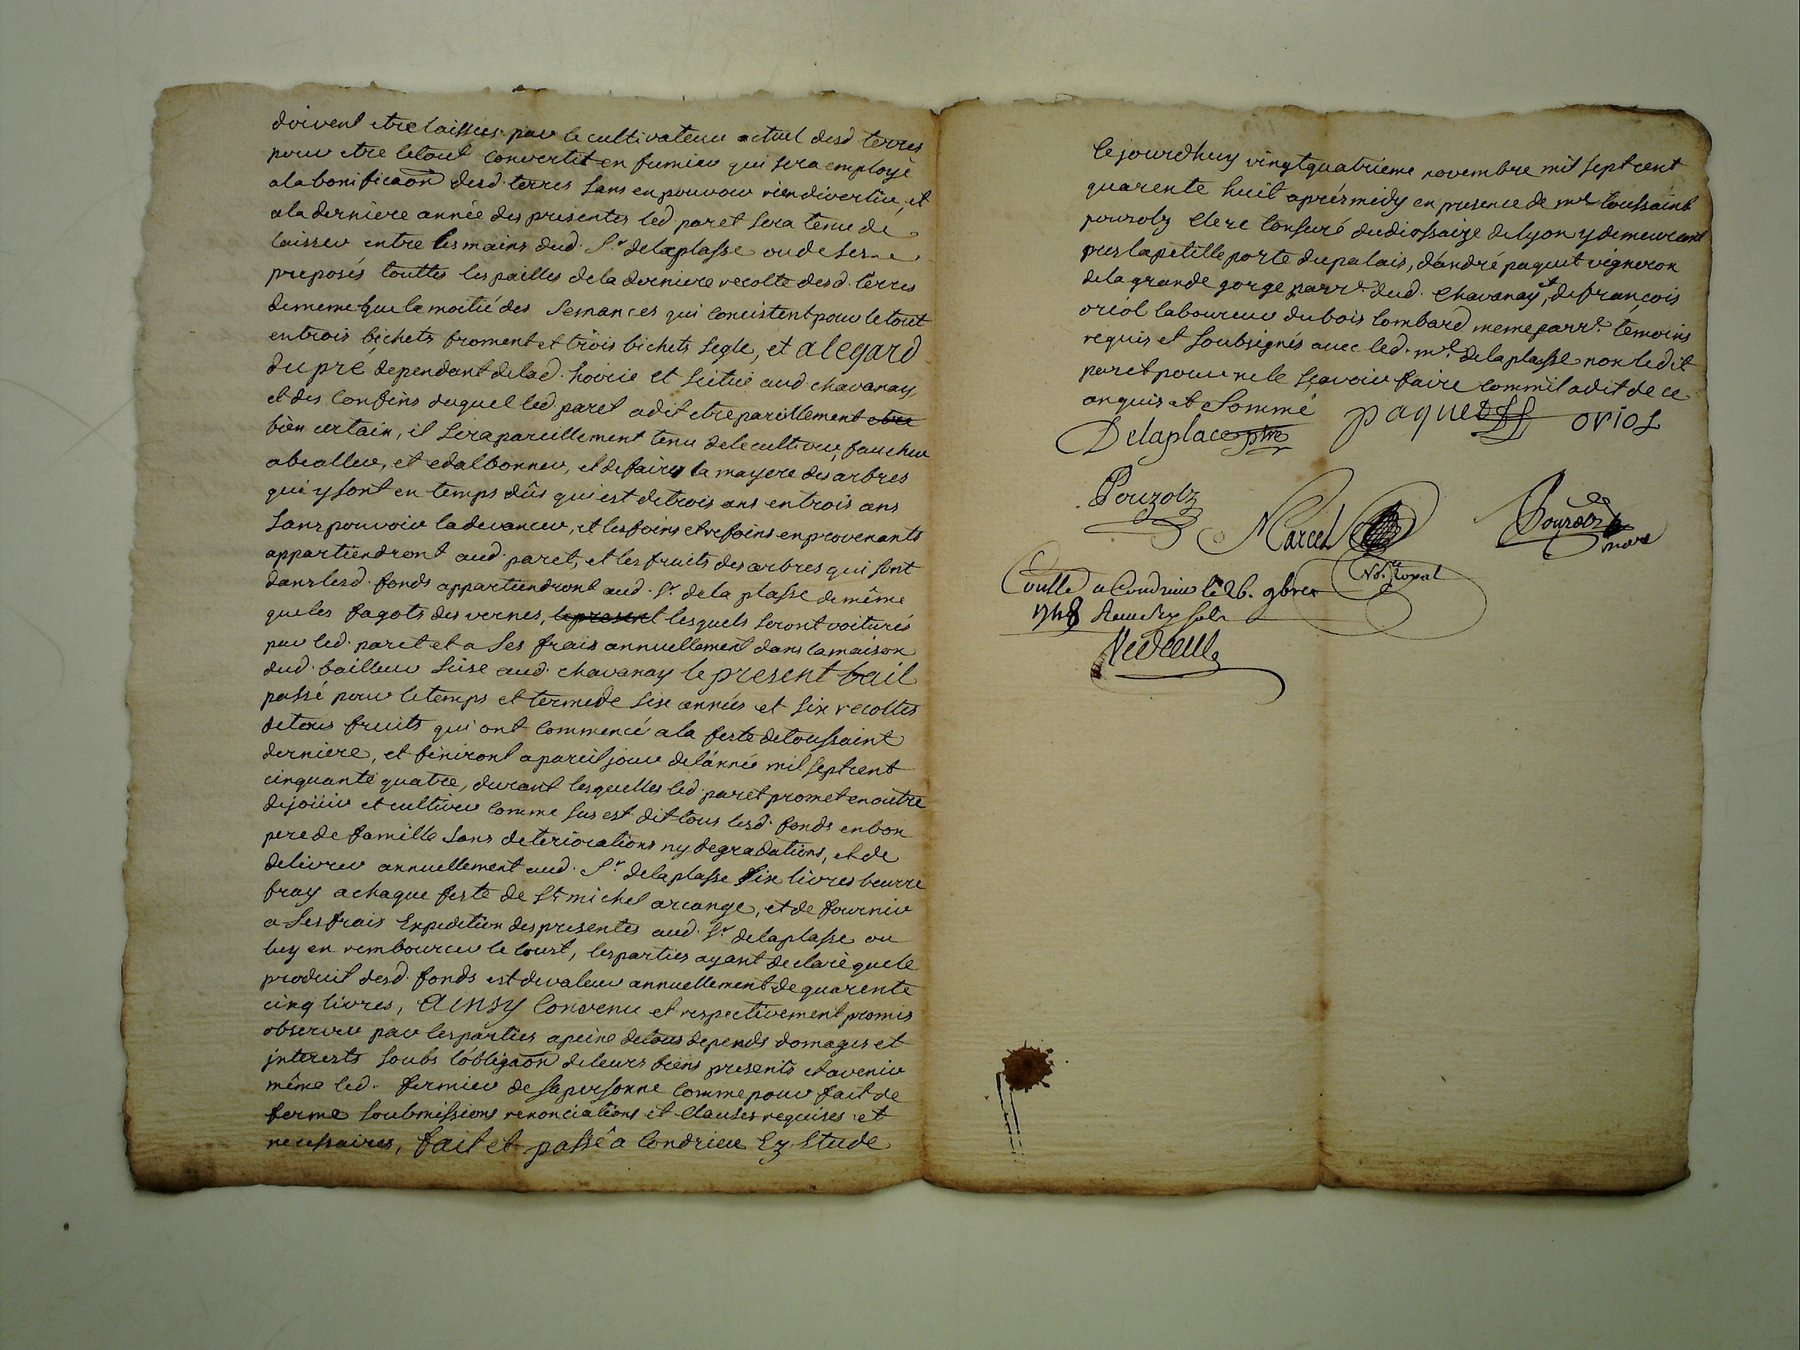 doivent etre laissées par le cultivateur actuel desd. terres
pour etre letout convertit en fumier qui sera employé
ala bonificaon desd. terres sans en pouvoir rien divertir, et
ala derniere année des presentes led paret sera tenu de
laisser entre les mains dud. Sr. delaplasse ou de ses
preposés touttes les pailles dela derniere recolte desd. terres
dememe que la moitié des semances qui consistent pour letout
entrois bichets froment et trois bichets segle, et a l'egard
du pré dependant delad. hoirie et scitué aud. chavanay
et des confins duquel led paret adit etre pareillement etre
bien certain, il sera pareillement tenu dele cultiver, faucher
abealler, et edalbonner, et defaire la mayere des arbres
qui y sont en temps dûs qui est de trois ans en trois ans
sans pouvoir la devancer, et les foins et refoins en provenants
appartiendront aud. paret, et les fruits des arbres qui sont
dans lesd. fonds appartiendront aud. Sr. dela plasse de même
que les fagots des vernes, lepresent lesquels seront voiturés
par led. paret et a ses frais annuellement dans la maison
dud. bailleur sise aud. chavanay le present bail
passé pour letemps et terme de six années et six recoltes
detous fruits qui ont commencé ala feste detoussaint
derniere, et finiront apareil jour del'année mil sept cent
cinquante quatre, durant lesquelles led paret promet en outre
dejoüir et cultiver comme sus est dit tous lesd. fonds en bon
pere de famille sans deteriorations ny degradations, et de
delivrer annuellement aud. Sr. delaplasse six livres beurre
fray achaque feste de St michel arcange, et de fournir
a ses frais Expedition des presentes aud. Sr. delaplasse ou
luy en rembourcer le coust, les parties ayant declaré que le
produit desd. fonds est devaleur annuellement de quarente
cinq livres, Ainsy convenu et respectivement promis
observer par les parties apeine detous depends domages et
interests soubs l'obligaon deleurs biens presents et avenir
même led. fermier de sa personne comme pour fait de
ferme soubmissions renonciations et clauses requises et
necessaires, fait et passé a Condrieu Ez Etude
Cejourdhuy vingtquatrieme novembre mil sept cent
quarente huit aprésmidy en presence de me. toussaint
pouzolz clerc tonsuré dudiossaize de lyon y demeurant
pres la petitte porte dupalais, d'andré paquet vigneron
dela grande gorge parr.e dud. chavanay, et de francois
oriol laboureur dubois lombard meme parr.e témoins
requis et soubsignés avec led. me. delaplasse non ledit
paret pour ne le sçavoir faire comm'il adit de ce
enquis et sommé
Delaplace ptre paquet oriol
Pouzolz
Marcel Pouzolz
No.re royal
Conllé a Condrieu le 26. 9bre
1748